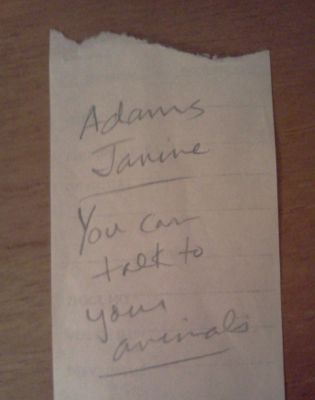 Adams
Janine
You can
talk to
your
animals